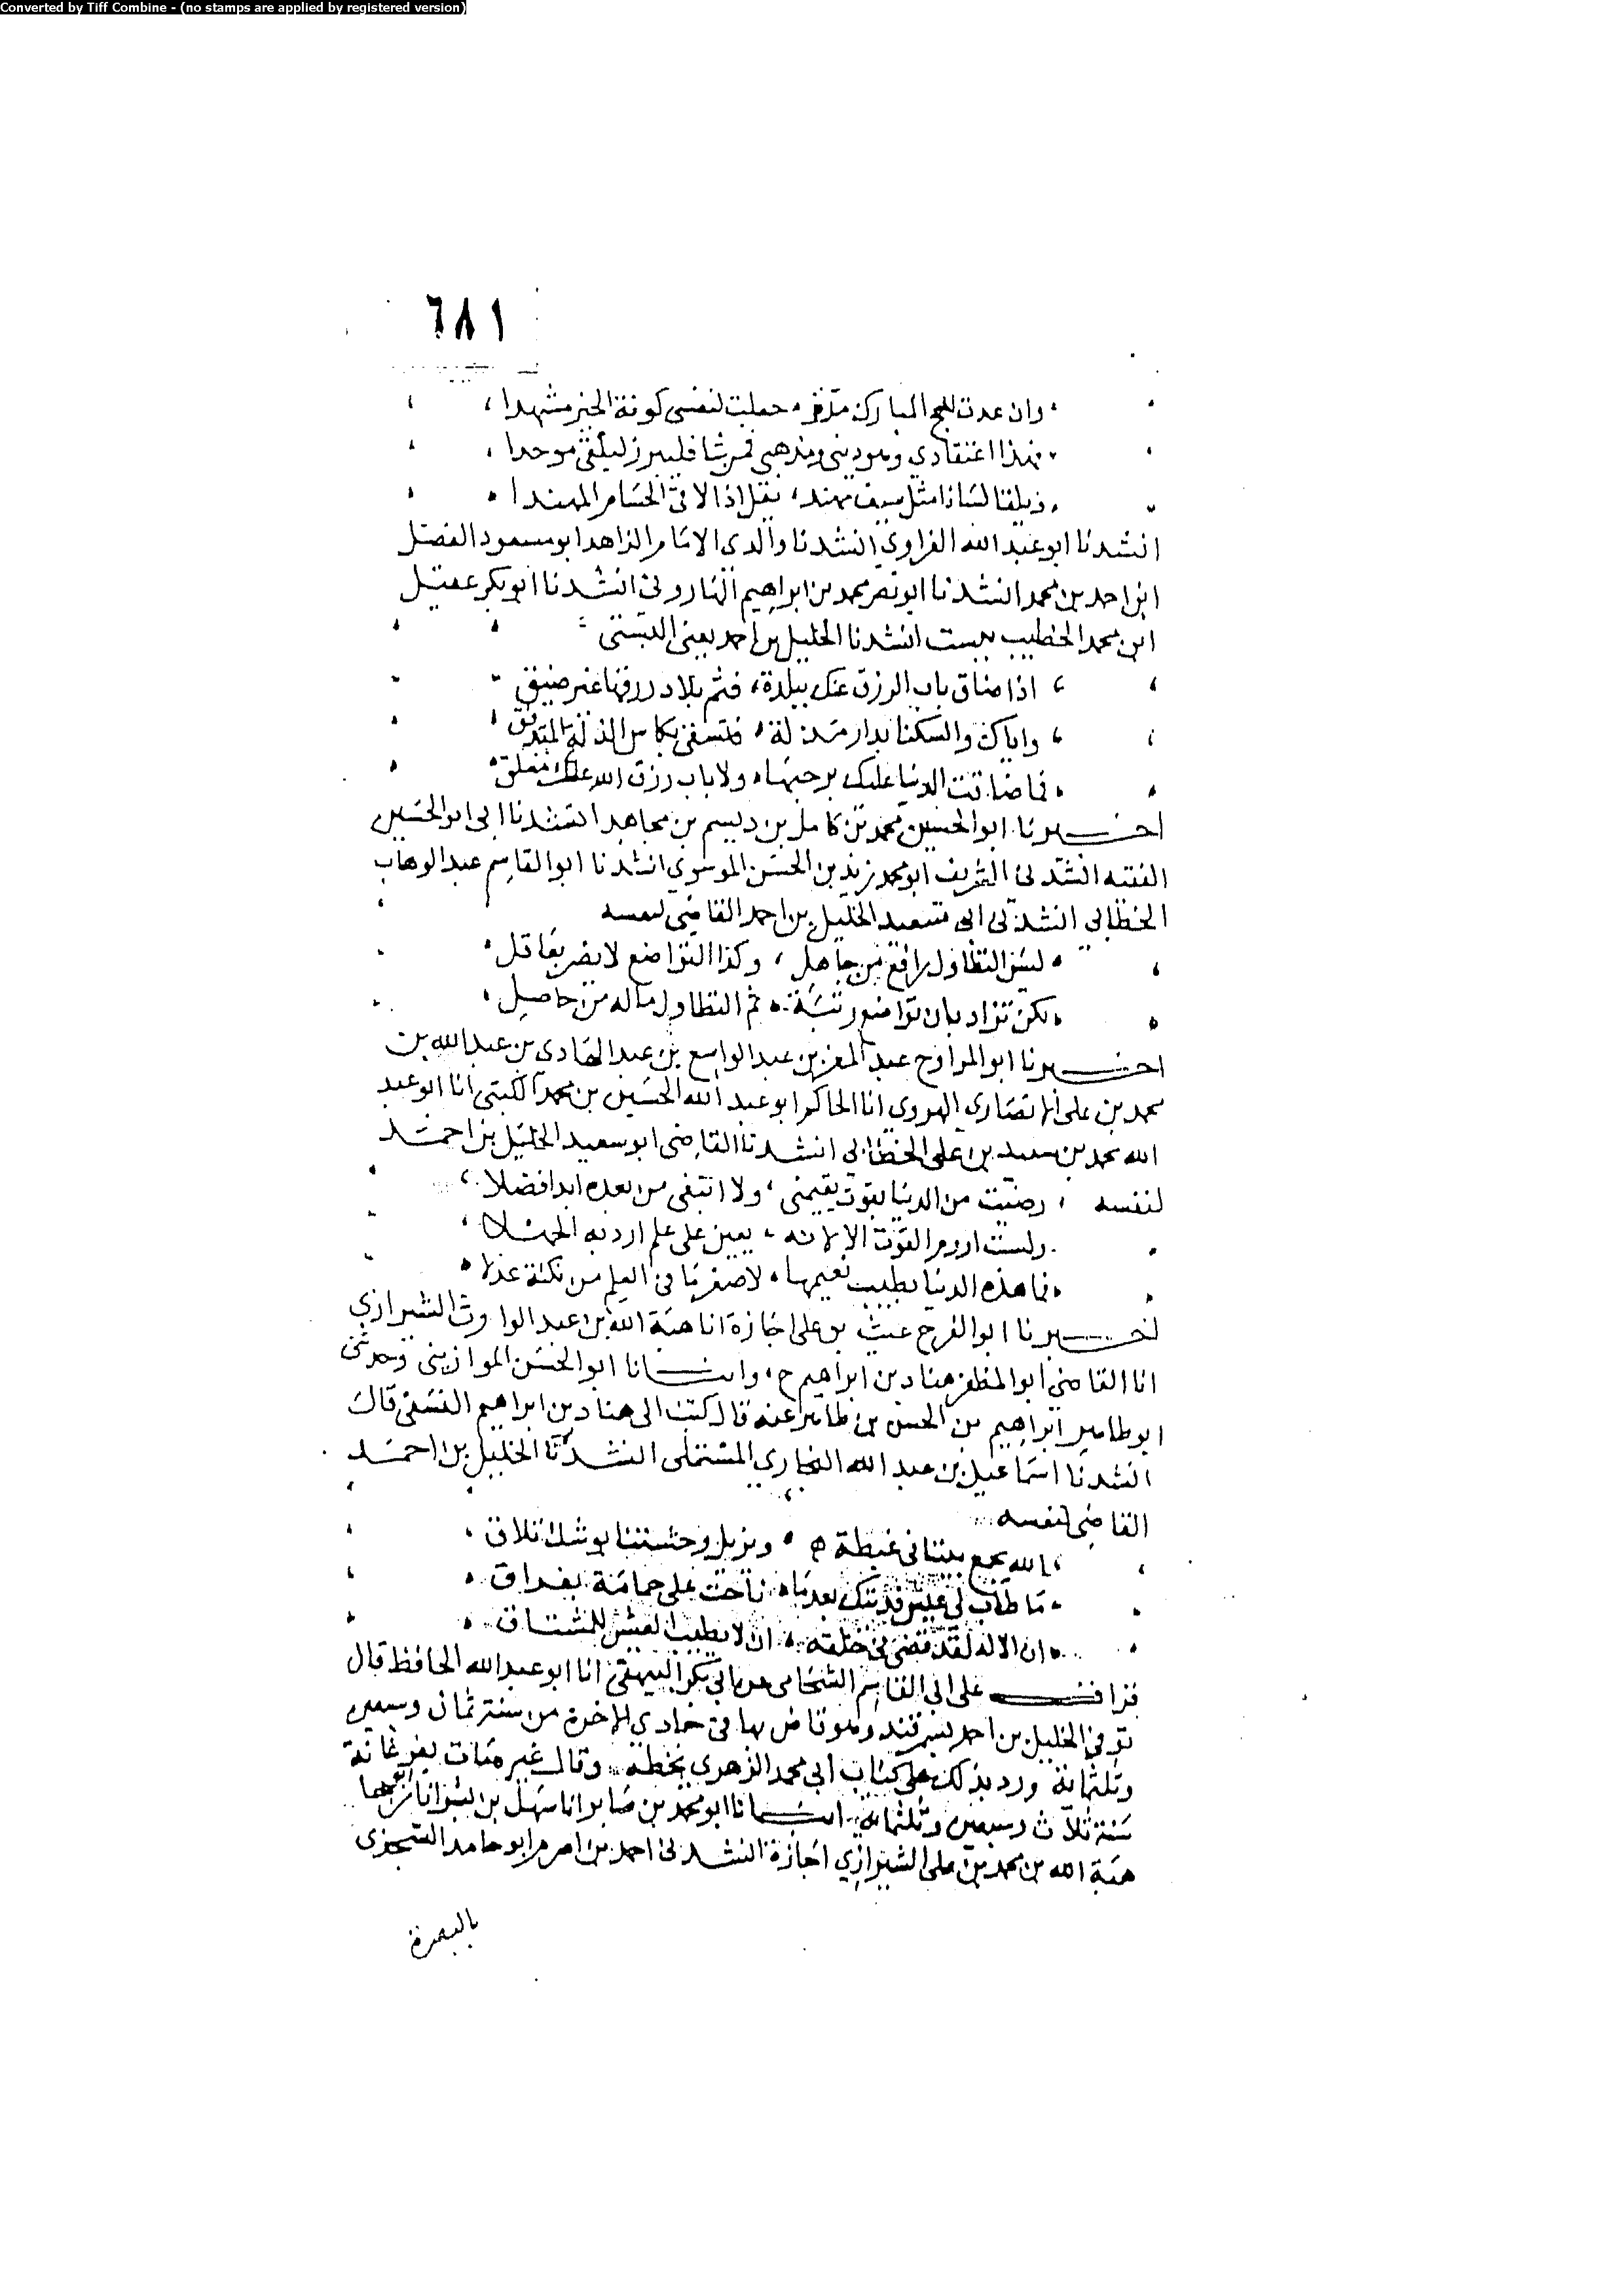 Converted by Tiff Combine - (no stamps are applied by registered version)
٦٨١
وان عدت للحج المبارك مرة جعلت لنفسي كوفة الخير مشهدا
فهذا اعتقادي وهو ديني ومذهبي فمن شا فليبرز ليلقى موحدا
ويلقا لسانا مثل سيف مهند يفل اذا لاقى الحسام المهندا
انشدنا ابو عبد الله الفراوي انشدنا والدي الامام الزاهد ابو مسعود الفضل
ابن احمد بن محمد انشدنا ابو نصر محمد بن ابراهيم الهاروني انشدنا ابو بكر عقيل
ابن محمد الخطيب ببست انشدنا الخليل بن احمد يعني البستي
اذا ضاق باب الرزق عنك ببلدة فثم بلاد رزقها غير ضيق
واياك والسكنا بدار مذلة فتسقى بكاس الذلة المتدفق
فما ضاقت الدنيا عليك برحبها ولا باب رزق الله عنك مغلق
اخبرنا ابو الحسين محمد بن كامل بن ديسم بن مجاهد انشدنا ابى ابو الحسين
الفقيه انشدني الشريف ابو محمد زيد بن الحسن الموسوي انشدنا ابو القاسم عبد الوهاب
الخطابي انشدني ابى سعيد الخليل بن احمد القاضي لنفسه
ليس التطاول رافع من جاهل وكذا التواضع لا يضر بعاقل
لكن تزاد بان تواضع رتبة ثم التطاول ماله من حاصل
اخبرنا ابو المراوح عبد المعز بن عبد الواسع بن عبد الهادي بن عبد الله بن
محمد بن على الانصاري الهروي انا الحاكم ابو عبد الله الحسين بن محمد الكتبى انا ابو عبد
الله محمد بن سعيد بن على الخطابى انشدنا القاضى ابو سعيد الخليل بن احمد
لنفسه رضيت من الدنيا بقوت يقيمنى ولا ابتغى من بعده ابدا فضلا
ولست اروم القوت الا لانه يعين على علم ارد به الجهلا
فما هذه الدنيا بطيب نعيمها لاصغر ما فى العلم من نكتة عدلا
اخبرنا ابو الفرج غيث بن على اجازة انا هبة الله بن عبد الوارث الشيرازي
انا القاضي ابو المظفر هناد بن ابراهيم ح وانبانا ابو الحسن الموازيني وحدثنى
ابو طاهر ابراهيم بن الحسن بن طاهر عنه قال كتب الى هناد بن ابراهيم النسفى قال
انشدنا اسماعيل بن عبد الله البخاري المستملى انشدنا الخليل بن احمد
القاضى لنفسه
الله يجمع بيننا في غبطة ويزيل وحشتنا بوشك تلاق
ما طاب لى عيش فديتك بعدما ناحت على حمامة بفراق
ان الاله لقد قضى في خلقه ان لا يطيب العيش للمشتاق
قرات على ابى القاسم الشحامى عن ابي بكر البيهقى انا ابو عبد الله الحافظ قال
توفي الخليل بن احمد بسمرقند وهو قاض بها في جمادي الاخرة من سنة ثمان وسبعين
وثلثمائة ورد بذلك على كتاب ابى محمد الزهرى بخطه وقال غيره مات بفرغانة
سنة ثلاث وسبعين وثلثمائة انبانا ابو محمد بن صابر انا سهل بن بشر انا
هبة الله بن محمد بن على الشيرازي اجازة انشدنى احمد بن ابو حامد السجزى
بالبصرة